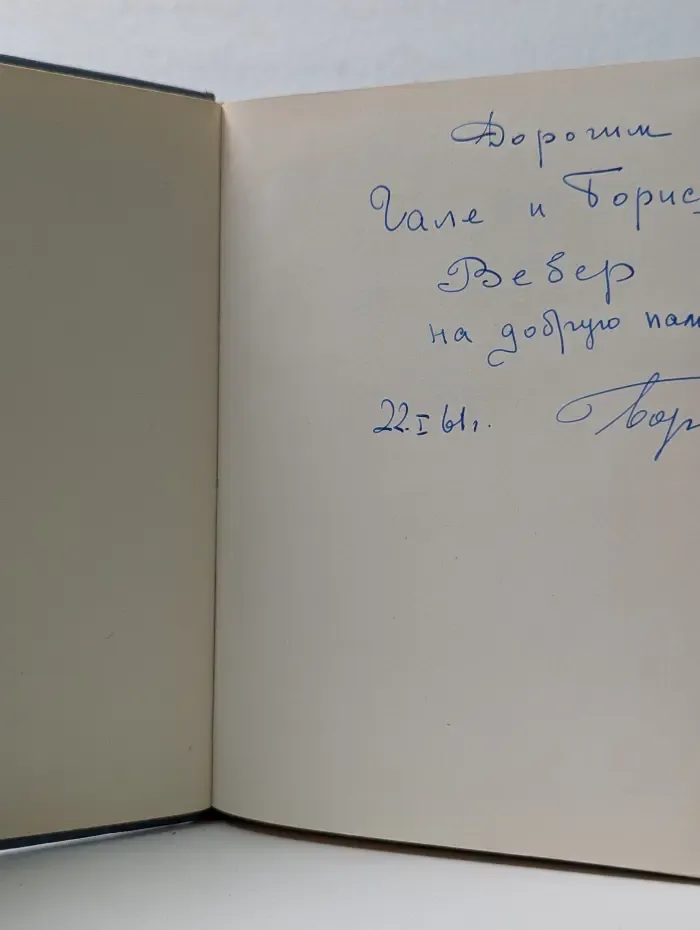 Дорогим
Гале и Борис
Вебер
на добрую пам
22.I 61г.